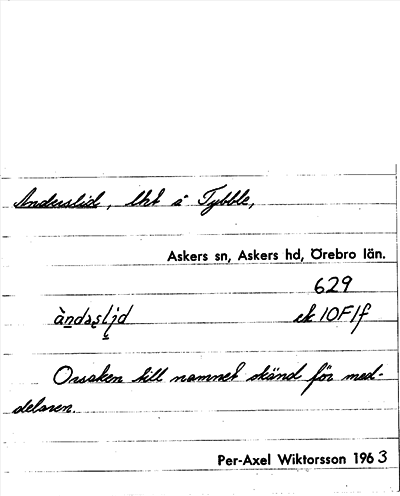 Anderslid, lht å Tybble,
Askers sn, Askers hd, Örebro län.
629
àndəsli̯d ek 10F1f
Orsaken till namnet okänd för med-
delaren.
Per-Axel Wiktorsson 1963